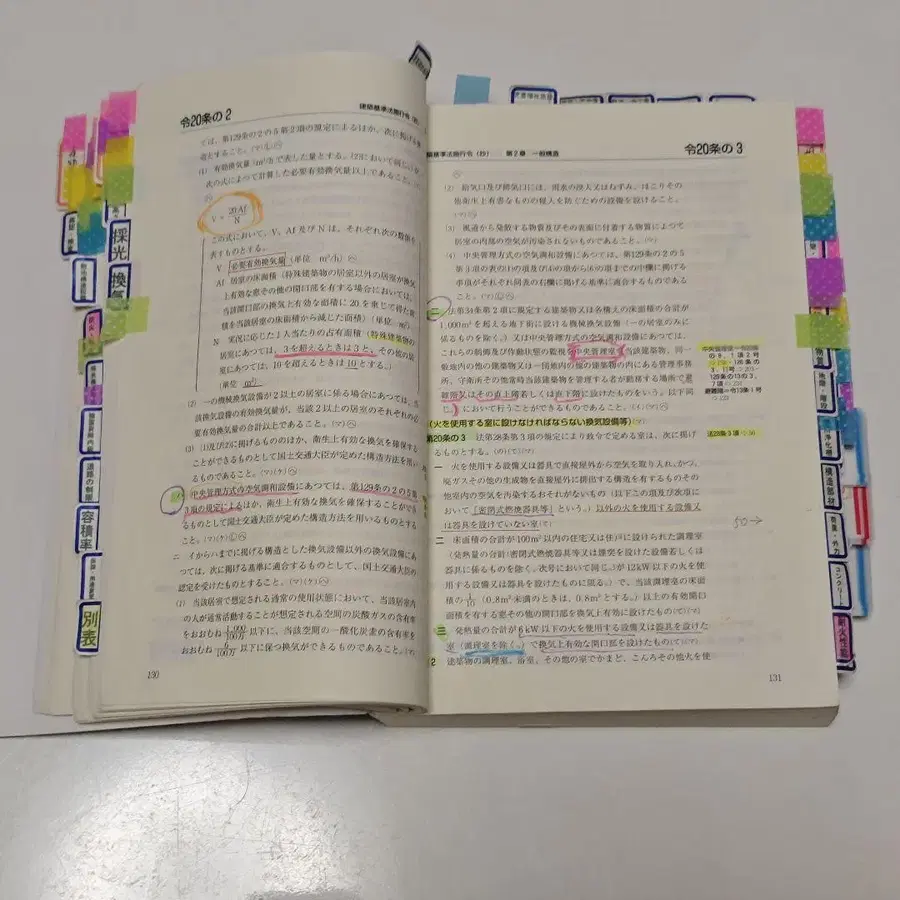 令20条の2
建築基準法施行令（抄）
ては、第129条の2の5第2項の規定によるほか、次に掲げる構
造とすること。(マ)Ⓛ㋬
(1) 有効換気量(m³/hで表した量とする。(2)において同じ。)が
次の式によって計算した必要有効換気量以上であること。(マ)
V = 20Af/N
この式において、V、Af 及びNは、それぞれ次の数値を
表すものとする。
V 必要有効換気量（単位 m³/h）㋬
Af 居室の床面積（特殊建築物の居室以外の居室が換気
上有効な窓その他の開口部を有する場合においては、
当該開口部の換気上有効な面積に20を乗じて得た面
積を当該居室の床面積から減じた面積）（単位 m²）
N 実況に応じた1人当たりの占有面積（特殊建築物の
居室にあつては、3を超えるときは3と、その他の居
室にあつては、10を超えるときは10とする。）
（単位 m²）
(2) 一の機械換気設備が2以上の居室に係る場合にあつては、当
該換気設備の有効換気量が、当該2以上の居室のそれぞれの必
要有効換気量の合計以上であること。(マ)
(3) (1)及び(2)に掲げるもののほか、衛生上有効な換気を確保する
ことができるものとして国土交通大臣が定めた構造方法を用い
るものであること。(マ)(ケ)㋬
ハ 中央管理方式の空気調和設備にあつては、第129条の2の5第
3項の規定によるほか、衛生上有効な換気を確保することができ
るものとして国土交通大臣が定めた構造方法を用いるものとする
こと。(マ)(ケ)Ⓛ㋬
ニ イからハまでに掲げる構造とした換気設備以外の換気設備にあ
つては、次に掲げる基準に適合するものとして、国土交通大臣の
認定を受けたものとすること。(マ)(ケ)㋬
(1) 当該居室で想定される通常の使用状態において、当該居室内
の人が通常活動することが想定される空間の炭酸ガスの含有率
をおおむね1000/100万以下に、当該空間の一酸化炭素の含有率を
おおむね10/100万以下に保つ換気ができるものであること。(マ)
130
建築基準法施行令（抄） 第2章 一般構造
令20条の3
(2) 給気口及び排気口には、雨水の浸入又はねずみ、ほこりその
他衛生上有害なものの侵入を防ぐための設備を設けること。
(マ)㋬
(3) 風道から発散する物質及びその表面に付着する物質によつて
居室の内部の空気が汚染されないものであること。(マ)㋬
(4) 中央管理方式の空気調和設備にあつては、第129条の2の5
第3項の表の(1)の項及び(4)の項から(6)の項までの中欄に掲げる
事項がそれぞれ同表の右欄に掲げる基準に適合するものである
こと。(マ)Ⓛ㋬
二 法第34条第2項に規定する建築物又は各構えの床面積の合計が
1,000m²を超える地下街に設ける機械換気設備（一の居室のみに
係るものを除く。）又は中央管理方式の空気調和設備にあつては、
これらの制御及び作動状態の監視を中央管理室（当該建築物、同一
敷地内の他の建築物又は一団地内の他の建築物の内にある管理事務
所、守衛所その他常時当該建築物を管理する者が勤務する場所で避
難階又はその直上階若しくは直下階に設けたものをいう。以下同
じ。）において行うことができるものであること。(イ)(マ)㋬
（火を使用する室に設けなければならない換気設備等）
第20条の3 法第28条第3項の規定により政令で定める室は、次に掲げ
るものとする。
法28条3項
一 火を使用する設備又は器具で直接屋外から空気を取り入れ、かつ、
廃ガスその他の生成物を直接屋外に排出する構造を有するものその
他室内の空気を汚染するおそれがないもの（以下この項及び次項に
おいて「密閉式燃焼器具等」という。）以外の火を使用する設備又
は器具を設けていない室
50→
二 床面積の合計が100m²以内の住宅又は住戸に設けられた調理室
（発熱量の合計（密閉式燃焼器具等又は煙突を設けた設備若しくは
器具に係るものを除く。次号において同じ。）が12kW以下の火を使
用する設備又は器具を設けたものに限る。）で、当該調理室の床面
積の1/10（0.8m²未満のときは、0.8m²とする。）以上の有効開口
面積を有する窓その他の開口部を換気上有効に設けたもの
三 発熱量の合計が6kW以下の火を使用する設備又は器具を設けた
室（調理室を除く。）で換気上有効な開口部を設けたもの
2 建築物の調理室、浴室、その他の室でかまど、こんろその他火を使
131
採光
換気
道路の制限
容積率
別表
構造部材
コンクリート
耐火性能